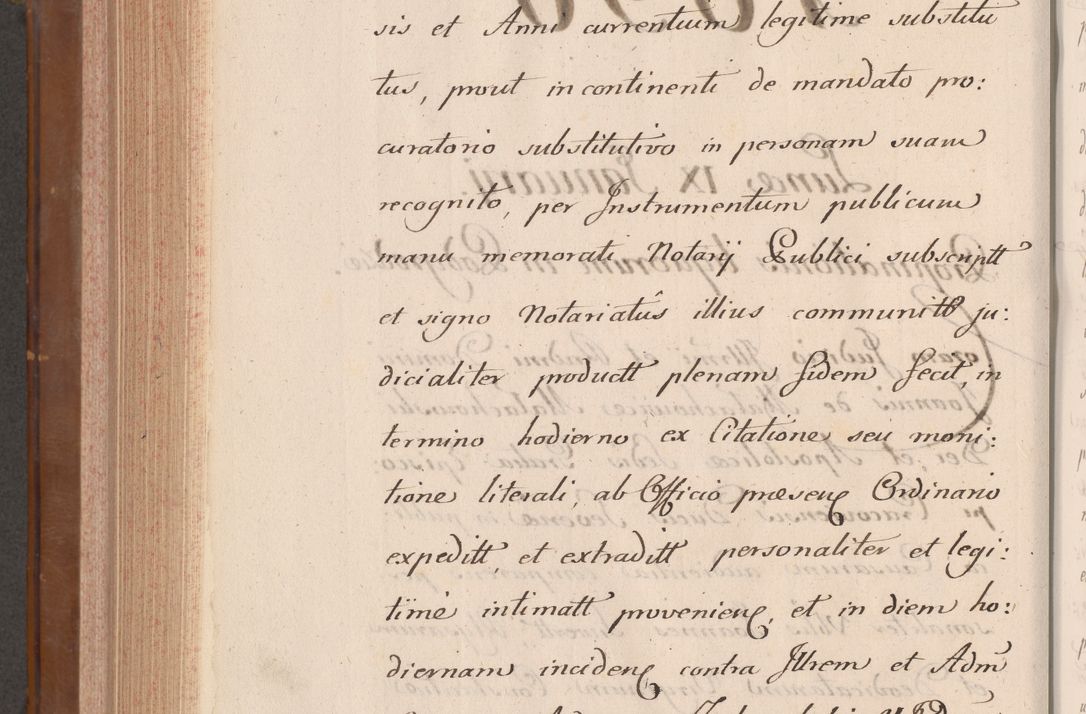 sis et Anni currentium legitime substitu
tus, prout in continenti de mandato pro:
curatorio substitutivo in personam suam
recognito, per Instrumentum publicum
manu memorati Notarij Publici subscriptt
et signo Notariatûs illius communitt ju:
dicialiter productt plenam fidem fecit, in
termino hodierno ex Citatione seu moni:
tione literali, ab Officio præsenꝭ Ordinario
expeditt, et extraditt personaliter et legi:
timè intimatt provenienꝭ, et in diem ho:
diernam incidenꝭ contra Illrem et Adm̃